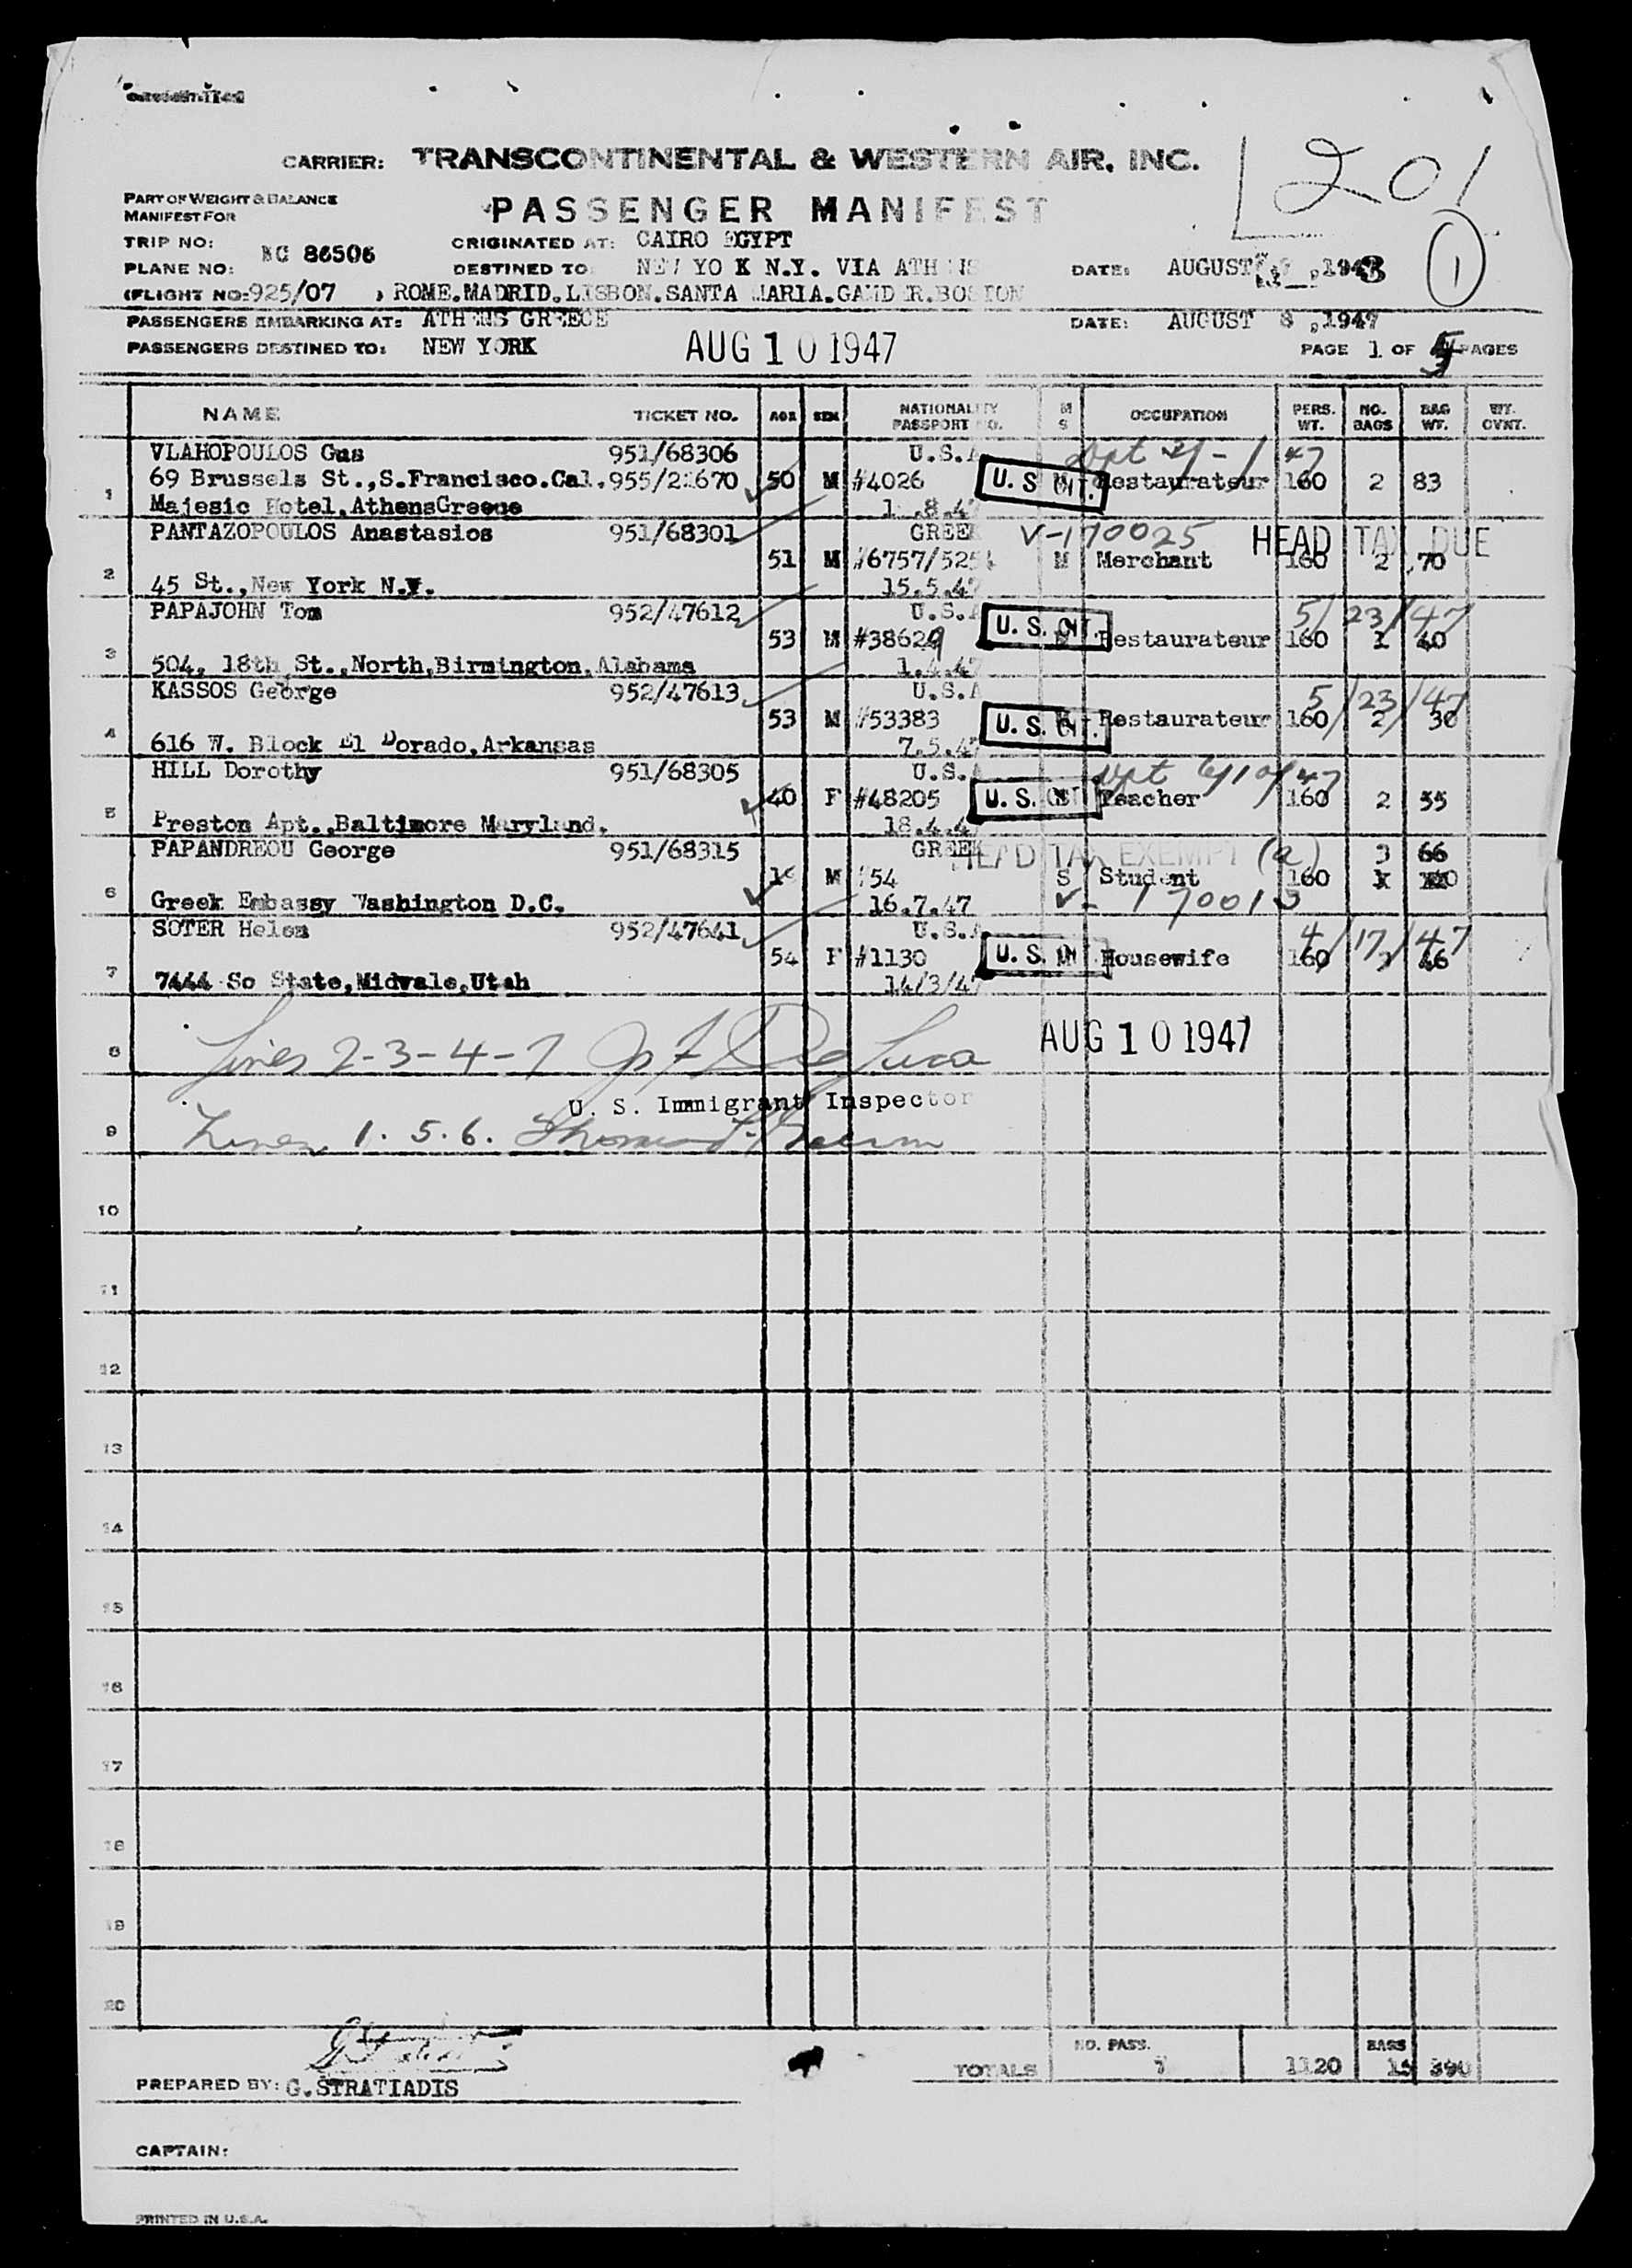 CARRIER: TRANSCONTINENTAL & WESTERN AIR, INC.
201
PART OF WEIGHT & BALANCE
MANIFEST FOR
PASSENGER MANIFEST
1
TRIP NO: NC 86506 ORIGINATED AT: CAIRO EGYPT
PLANE NO: DESTINED TO: NEW YO K N.Y. VIA ATHENS DATE: AUGUST
(FLIGHT NO: 925/07 , ROME.MADRID.LISBON.SANTA MARIA.GAND R.BOSTON
PASSENGERS EMBARKING AT: ATHENS GREECE DATE: AUGUST 8 ,1947
PASSENGERS DESTINED TO: NEW YORK AUG 10 1947 PAGE 1 OF 5 PAGES
NAME TICKET NO. AGE SEX NATIONALITY PASSPORT NO. M S OCCUPATION PERS. WT. NO. BAGS BAG WT. WT. CVNT.
VLAHOPOULOS Gus 951/68306 U.S.A
1 69 Brussels St.,S.Francisco.Cal. 955/21670 50 M #4026 U. S. CIT. M Restaurateur 160 2 83
Majesic Hotel,AthensGreece
PANTAZOPOULOS Anastasios 951/68301 GREEK V-170025 HEAD TAX DUE
2 51 M #6757/525 M Merchant 160 2 70
45 St.,New York N.Y. 15.5.47
PAPAJOHN Tom 952/47612 U.S.A U. S. CIT. 5/23/47
3 53 M #38629 Restaurateur 160 1 40
504, 18th St.,North,Birmington,Alabama 1.4.47
KASSOS George 952/47613 U.S.A 5/23/47
4 53 M #53383 U. S. CIT. Restaurateur 160 2 30
616 W. Block El Dorado,Arkansas 7.5.47
HILL Dorothy 951/68305 U.S.
5 40 F #48205 U. S. CIT. Teacher 160 2 55
Preston Apt.,Baltimore Maryland. 18.4.47
PAPANDREOU George 951/68315 GREEK HEAD TAX EXEMPT (a) 3 66
6 M #54 S Student 160
Greek Embassy Washington D.C. 16.7.47 V- 170013
SOTER Helen 952/47641 U.S.A 4/17/47
7 54 F #1130 U. S. CIT. Housewife 160 46
7444 So State,Midvale,Utah 14/3/47
8 Lines 2-3-4-7 AUG 10 1947
U. S. Immigrant Inspector
9 Lines 1. 5. 6.
10
11
12
13
14
15
16
17
18
19
20
NO. PASS. BAGS
TOTALS 7 1120 15 390
PREPARED BY: G.STRATIADIS
CAPTAIN:
PRINTED IN U.S.A.